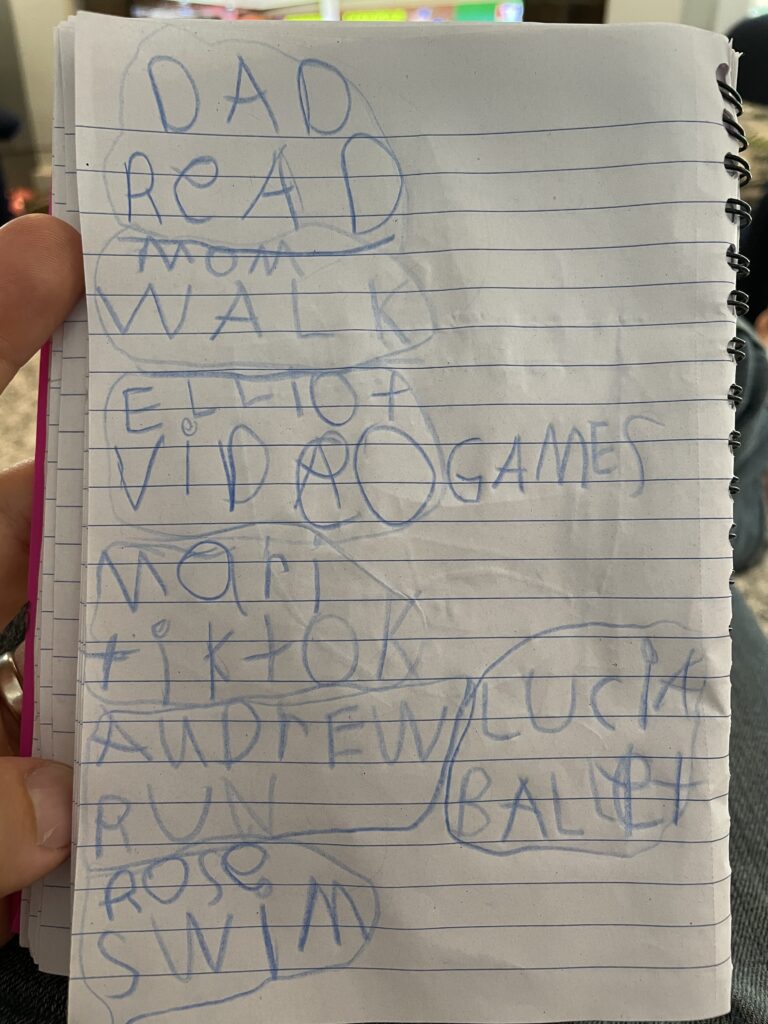 DAD
READ
MOM
WALK
ELLIOt
ViDEO GAMES
Mari
tiktOK
ANDrEW
RUN
LUCIA
BALLEt
ROSe
SWIM